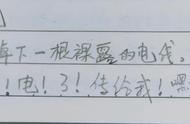 掉下一根裸露的电线。
！电！了！传给我！嘿